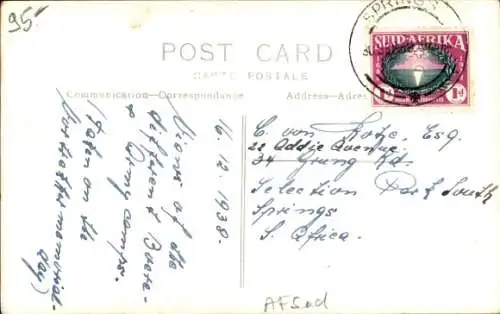 95-
SPRINGS
SUID-AFRIKA
1d
1d
POST CARD
CARTE POSTALE
Communication—Correspondance
Address—Adresse
16.12.1938.
Views of the
different Boere-
Army camps.
(Taken on the
Voortrekkermemorial-
day)
C. von Kotze, Esq.
22 Addie Avenue.
34 Grung Rd.
Selection Park South
Springs
S. Africa.